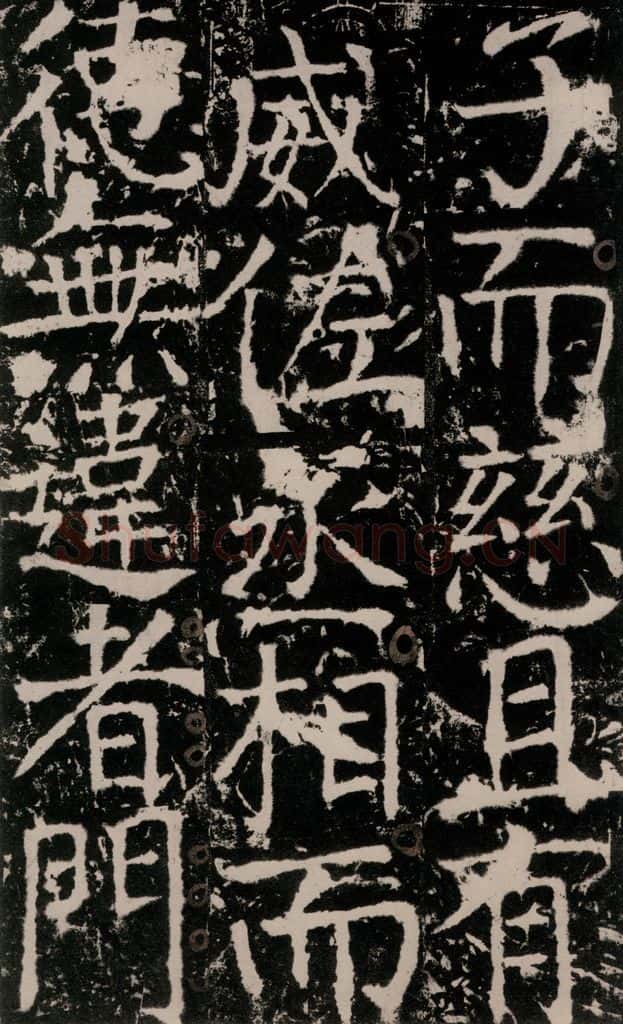 子而慈且有
威丞相而
德無違者門
Shufawang.CN